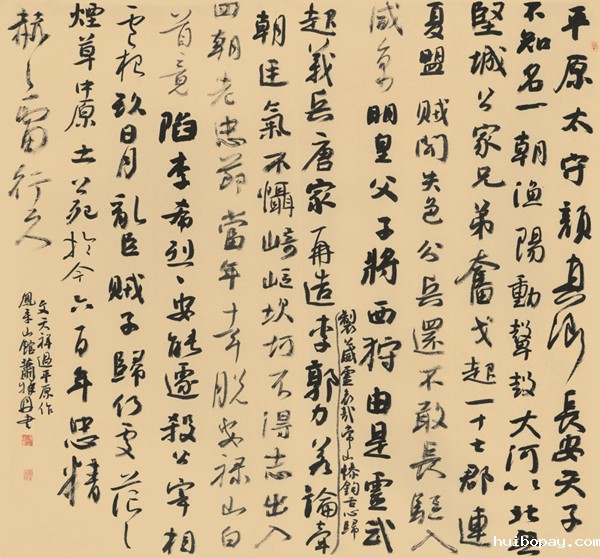 平原太守顏真卿長安天子
不知名一朝漁陽動鼙鼓大河以北無
堅城公家兄弟奮戈起一十七郡連
夏盟賊聞失色分兵還不敢長驅入
咸京明皇父子將西狩由是靈武
起義兵唐家再造李郭力若論牽
製公威靈哀哉常山慘鉤舌心歸
朝廷氣不懾崎嶇坎坷不得志出入
四朝老忠節當年幸脫安祿山白
首竟陷李希烈〻安能遽殺公宰相
盧杞欺日月亂臣賊子歸何處茫〻
煙草中原土公死於今六百年忠精
赫〻雷行天
文天祥過平原作
鳳來山館蕭雅書
huibopay.com